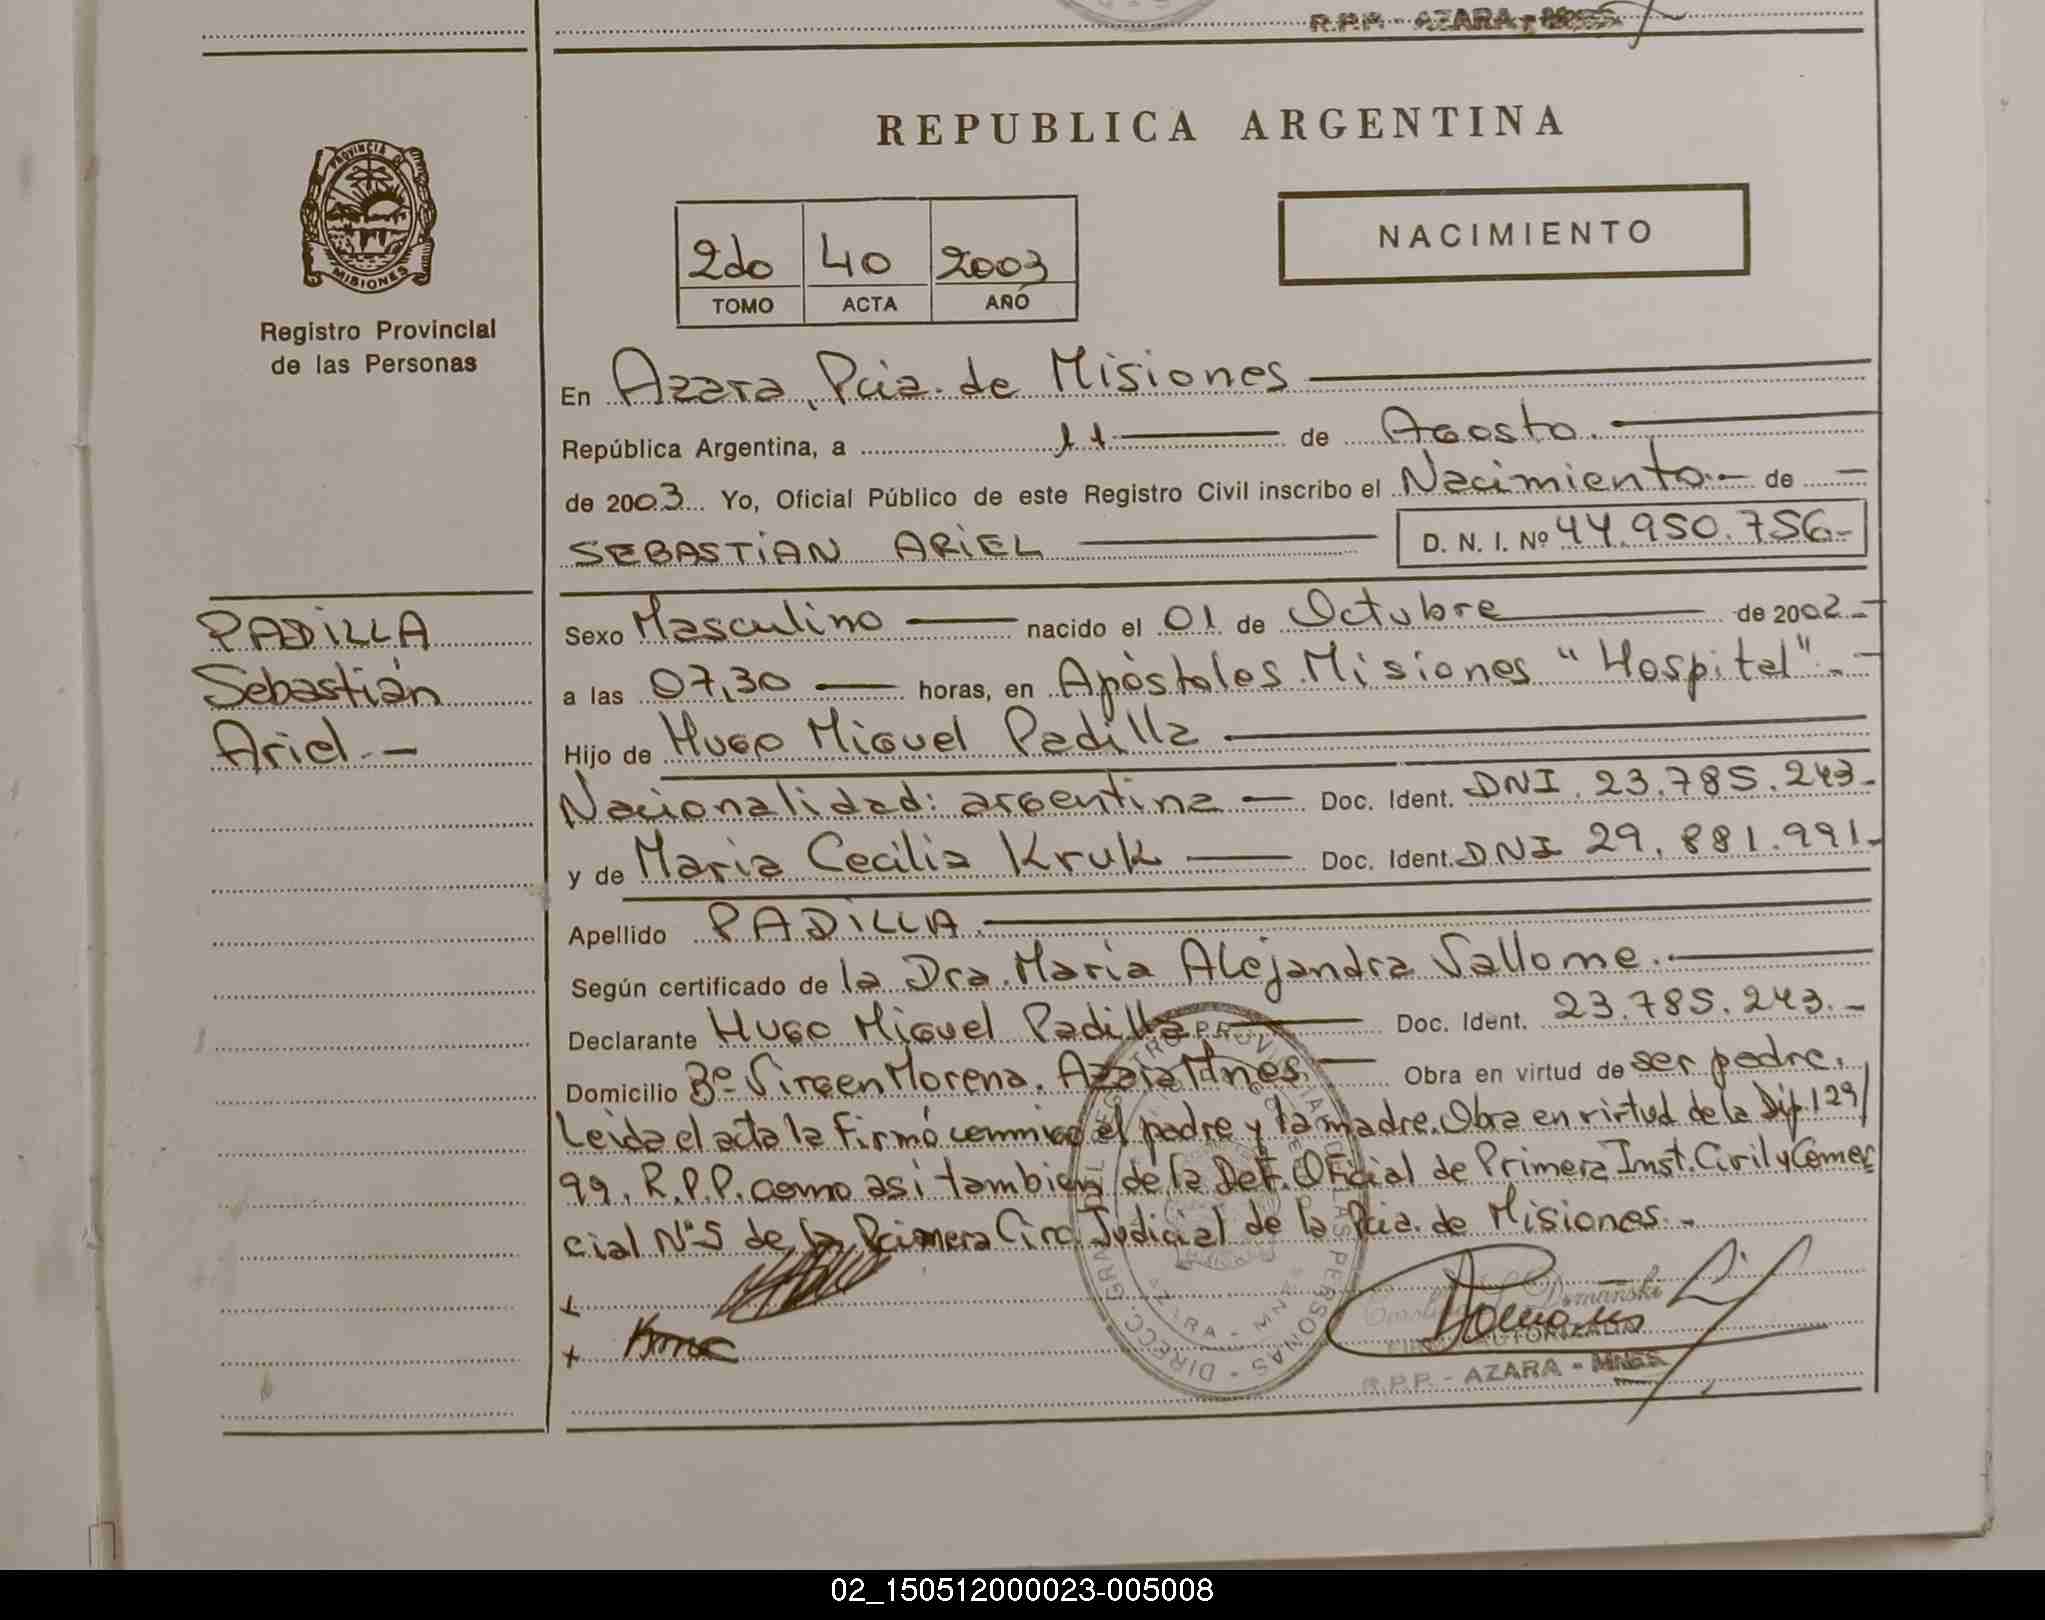 R.P.P. - AZARA - MNES
REPUBLICA ARGENTINA
PROVINCIA D
MISIONES
Registro Provincial
de las Personas
2do 40 2003
TOMO ACTA AÑO
NACIMIENTO
En Azara, Pcia. de Misiones
República Argentina, a 11 de Agosto.
de 2003 Yo, Oficial Público de este Registro Civil inscribo el Nacimiento.- de -
SEBASTIAN ARIEL D. N. I. Nº 44.950.756.-
PADILLA
Sebastián
Ariel.-
Sexo Masculino nacido el 01 de Octubre de 2002.-
a las 07,30 horas, en Apóstoles. Misiones "Hospital".-
Hijo de Hugo Miguel Padilla
Nacionalidad: argentina - Doc. Ident. DNI. 23.785.243.-
y de Maria Cecilia Kruk Doc. Ident. DNI 29.881.991.-
Apellido PADILLA
Según certificado de la Dra. Maria Alejandra Vallome.
Declarante Hugo Miguel Padilla Doc. Ident. 23.785.243.-
Domicilio Bº Virgen Morena. Azara Mnes. Obra en virtud de ser padre.
Leida el acta la firmó conmigo el padre y la madre. Obra en virtud de la Disp. 129/
99. R.P.P. como asi tambien de la Def. Oficial de Primera Inst. Civil y Comer
cial Nº5 de la Primera Circ. Judicial de la Pcia. de Misiones.-
Domanski
FIRMA AUTORIZADA
R.P.P. - AZARA - MNES
02_150512000023-005008